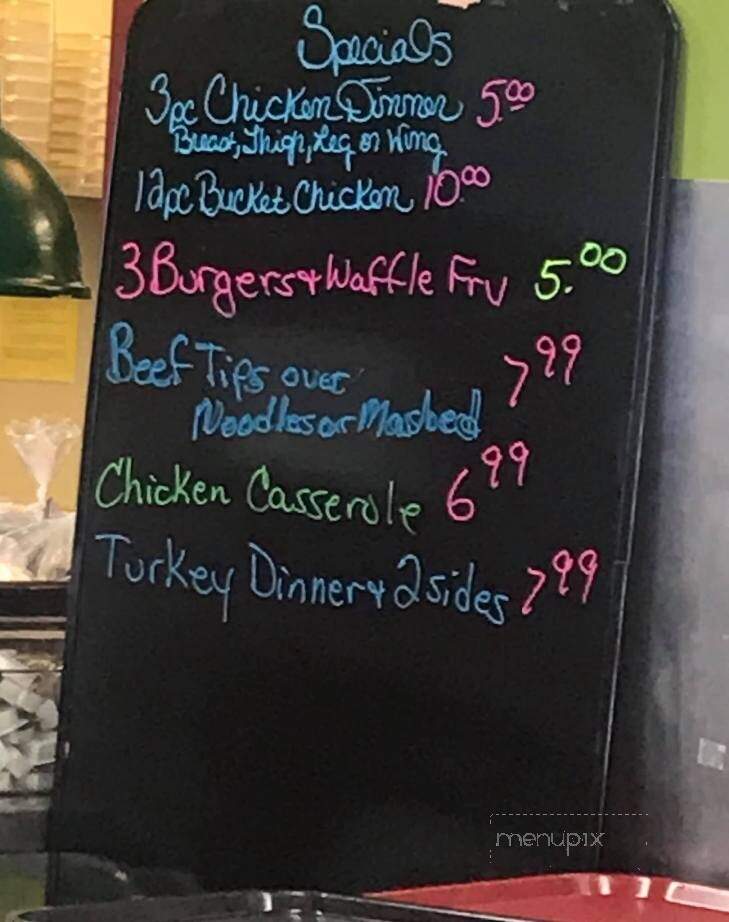 Specials
3pc Chicken Dinner 5.00
Breast, Thigh, Leg or Wing
12pc Bucket Chicken 10.00
3 Burgers & Waffle Fry 5.00
Beef Tips over 7 99
Noodles or Mashed
Chicken Casserole 6 99
Turkey Dinner & 2 sides 7 99
menupix